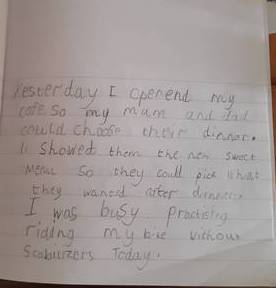 Yesterday I openend my
cafe so my mum and dad
could choose their dinner.
I showed them the new sweet
menu so they could pick what
they wanted after dinner.
I was busy Practisig
riding my bike without
Scabilizers Today.